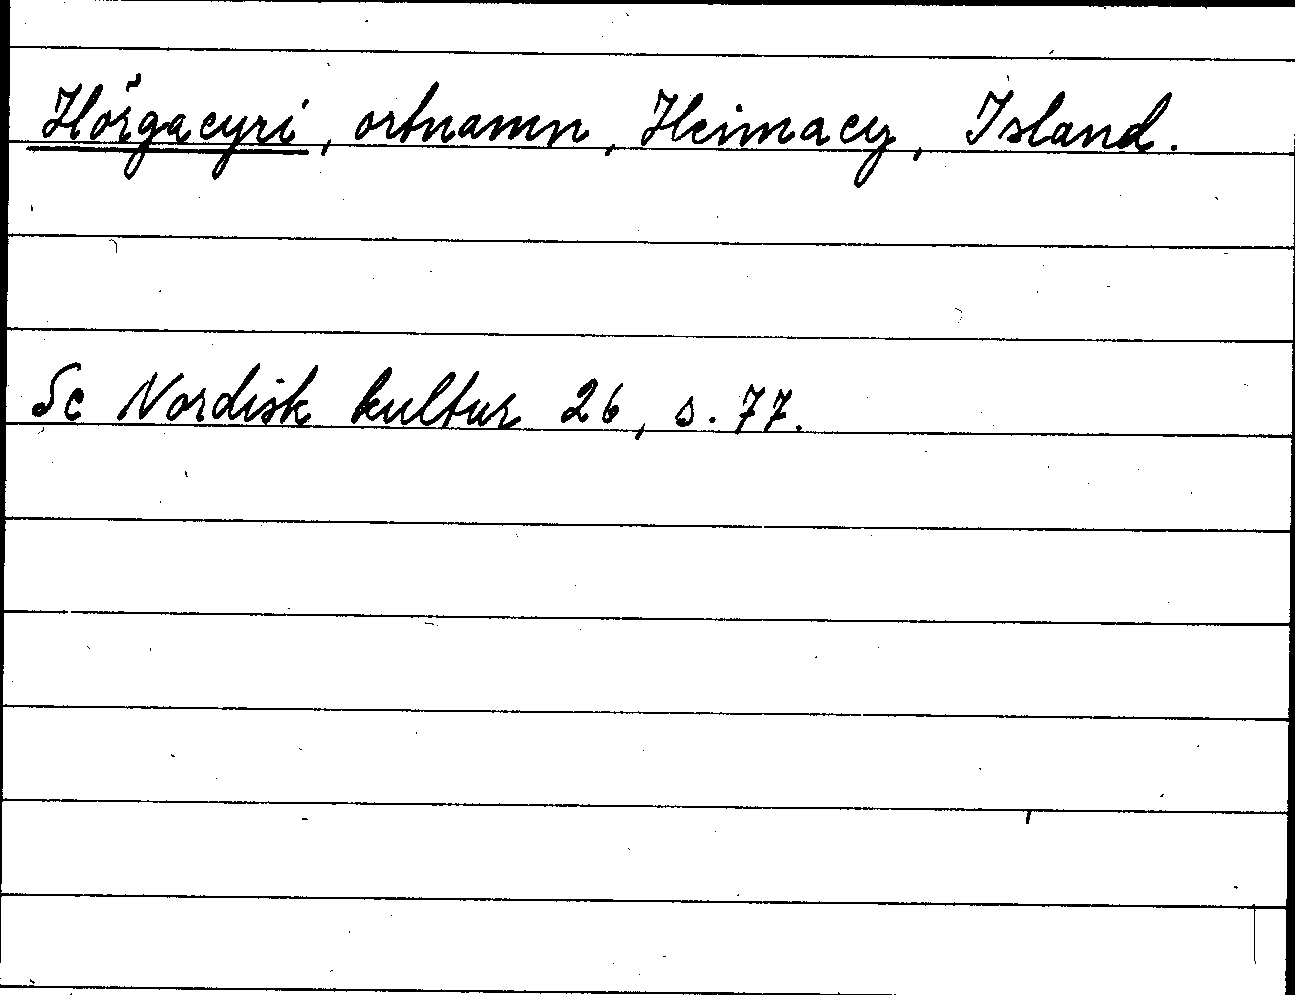 Hörgaeyri, ortnamn, Heimaey, Island.
Se Nordisk kultur 26, s. 77.